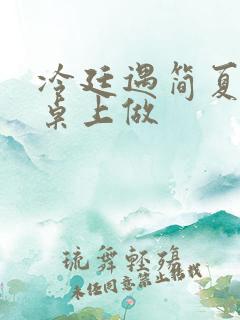 冷廷遇简夏
桌上做
琉舞轻殇
未经同意禁止转载